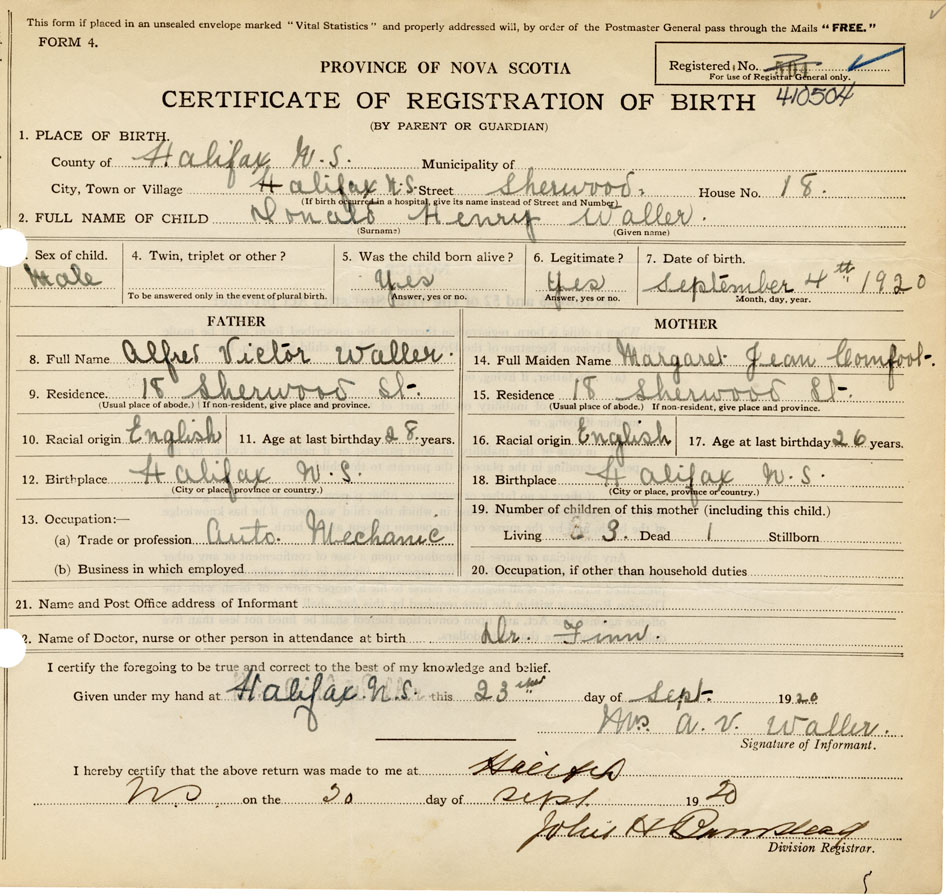 This form if placed in an unsealed envelope marked "Vital Statistics" and properly addressed will, by order of the Postmaster General pass through the Mails "FREE."
FORM 4.
Registered No. 504
For use of Registrar General only.
410504
PROVINCE OF NOVA SCOTIA
CERTIFICATE OF REGISTRATION OF BIRTH
(BY PARENT OR GUARDIAN)
1. PLACE OF BIRTH.
County of Halifax N.S. Municipality of
City, Town or Village Halifax N.S. Street Sherwood. House No. 18.
(If birth occurred in a hospital, give its name instead of Street and Number)
2. FULL NAME OF CHILD Donald Henry Waller.
(Surname) (Given name)
. Sex of child. 4. Twin, triplet or other? 5. Was the child born alive? 6. Legitimate? 7. Date of birth.
Male Yes Yes September 4th 1920
To be answered only in the event of plural birth. Answer, yes or no. Answer, yes or no. Month, day, year.
FATHER
8. Full Name Alfred Victor Waller.
9. Residence. 18 Sherwood St.
(Usual place of abode.) If non-resident, give place and province.
10. Racial origin English 11. Age at last birthday 28 years.
12. Birthplace Halifax N.S.
(City or place, province or country.)
13. Occupation:—
(a) Trade or profession Auto. Mechanic
(b) Business in which employed
MOTHER
14. Full Maiden Name Margaret Jean Comfoot.
15. Residence 18 Sherwood St.
(Usual place of abode.) If non-resident, give place and province.
16. Racial origin English 17. Age at last birthday 26 years.
18. Birthplace Halifax N.S.
(City or place, province or country.)
19. Number of children of this mother (including this child.)
Living 3. Dead 1 Stillborn
20. Occupation, if other than household duties
21. Name and Post Office address of Informant
2. Name of Doctor, nurse or other person in attendance at birth Dr. Finn.
I certify the foregoing to be true and correct to the best of my knowledge and belief.
Given under my hand at Halifax N.S. this 23 day of Sept. 1920
Mrs A. V. Waller.
Signature of Informant.
I hereby certify that the above return was made to me at Halifax
N.S. on the 30 day of Sept. 1920
John H
Division Registrar.